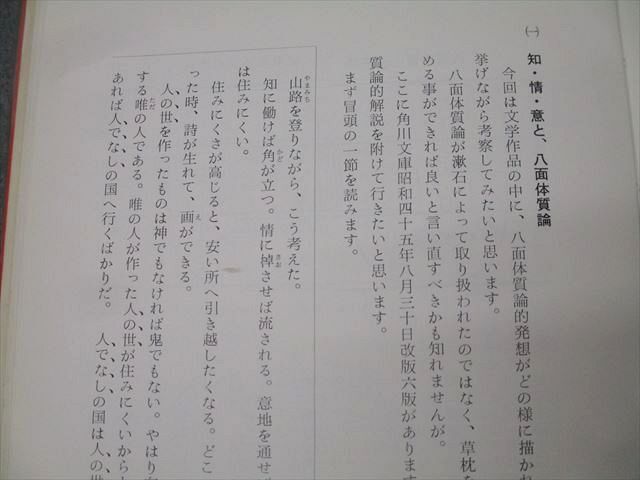 ㈠ 知・情・意と、八面体質論
今回は文学作品の中に、八面体質論的発想がどの様に描かれ
挙げながら考察してみたいと思います。
八面体質論が漱石によって取り扱われたのではなく、草枕を
める事ができれば良いと言い直すべきかも知れませんが。
ここに角川文庫昭和四十五年八月三十日改版六版があります
質論的解説を附けて行きたいと思います。
まず冒頭の一節を読みます。
山路を登りながら、こう考えた。
知に働けば角が立つ。情に棹させば流される。意地を通せば
は住みにくい。
住みにくさが高じると、安い所へ引き越したくなる。どこ
った時、詩が生れて、画ができる。
人の世を作ったものは神でもなければ鬼でもない。やはり
する唯の人である。唯の人が作った人の世が住みにくいからし
あれば人でなしの国へ行くばかりだ。 人でなしの国は人の世